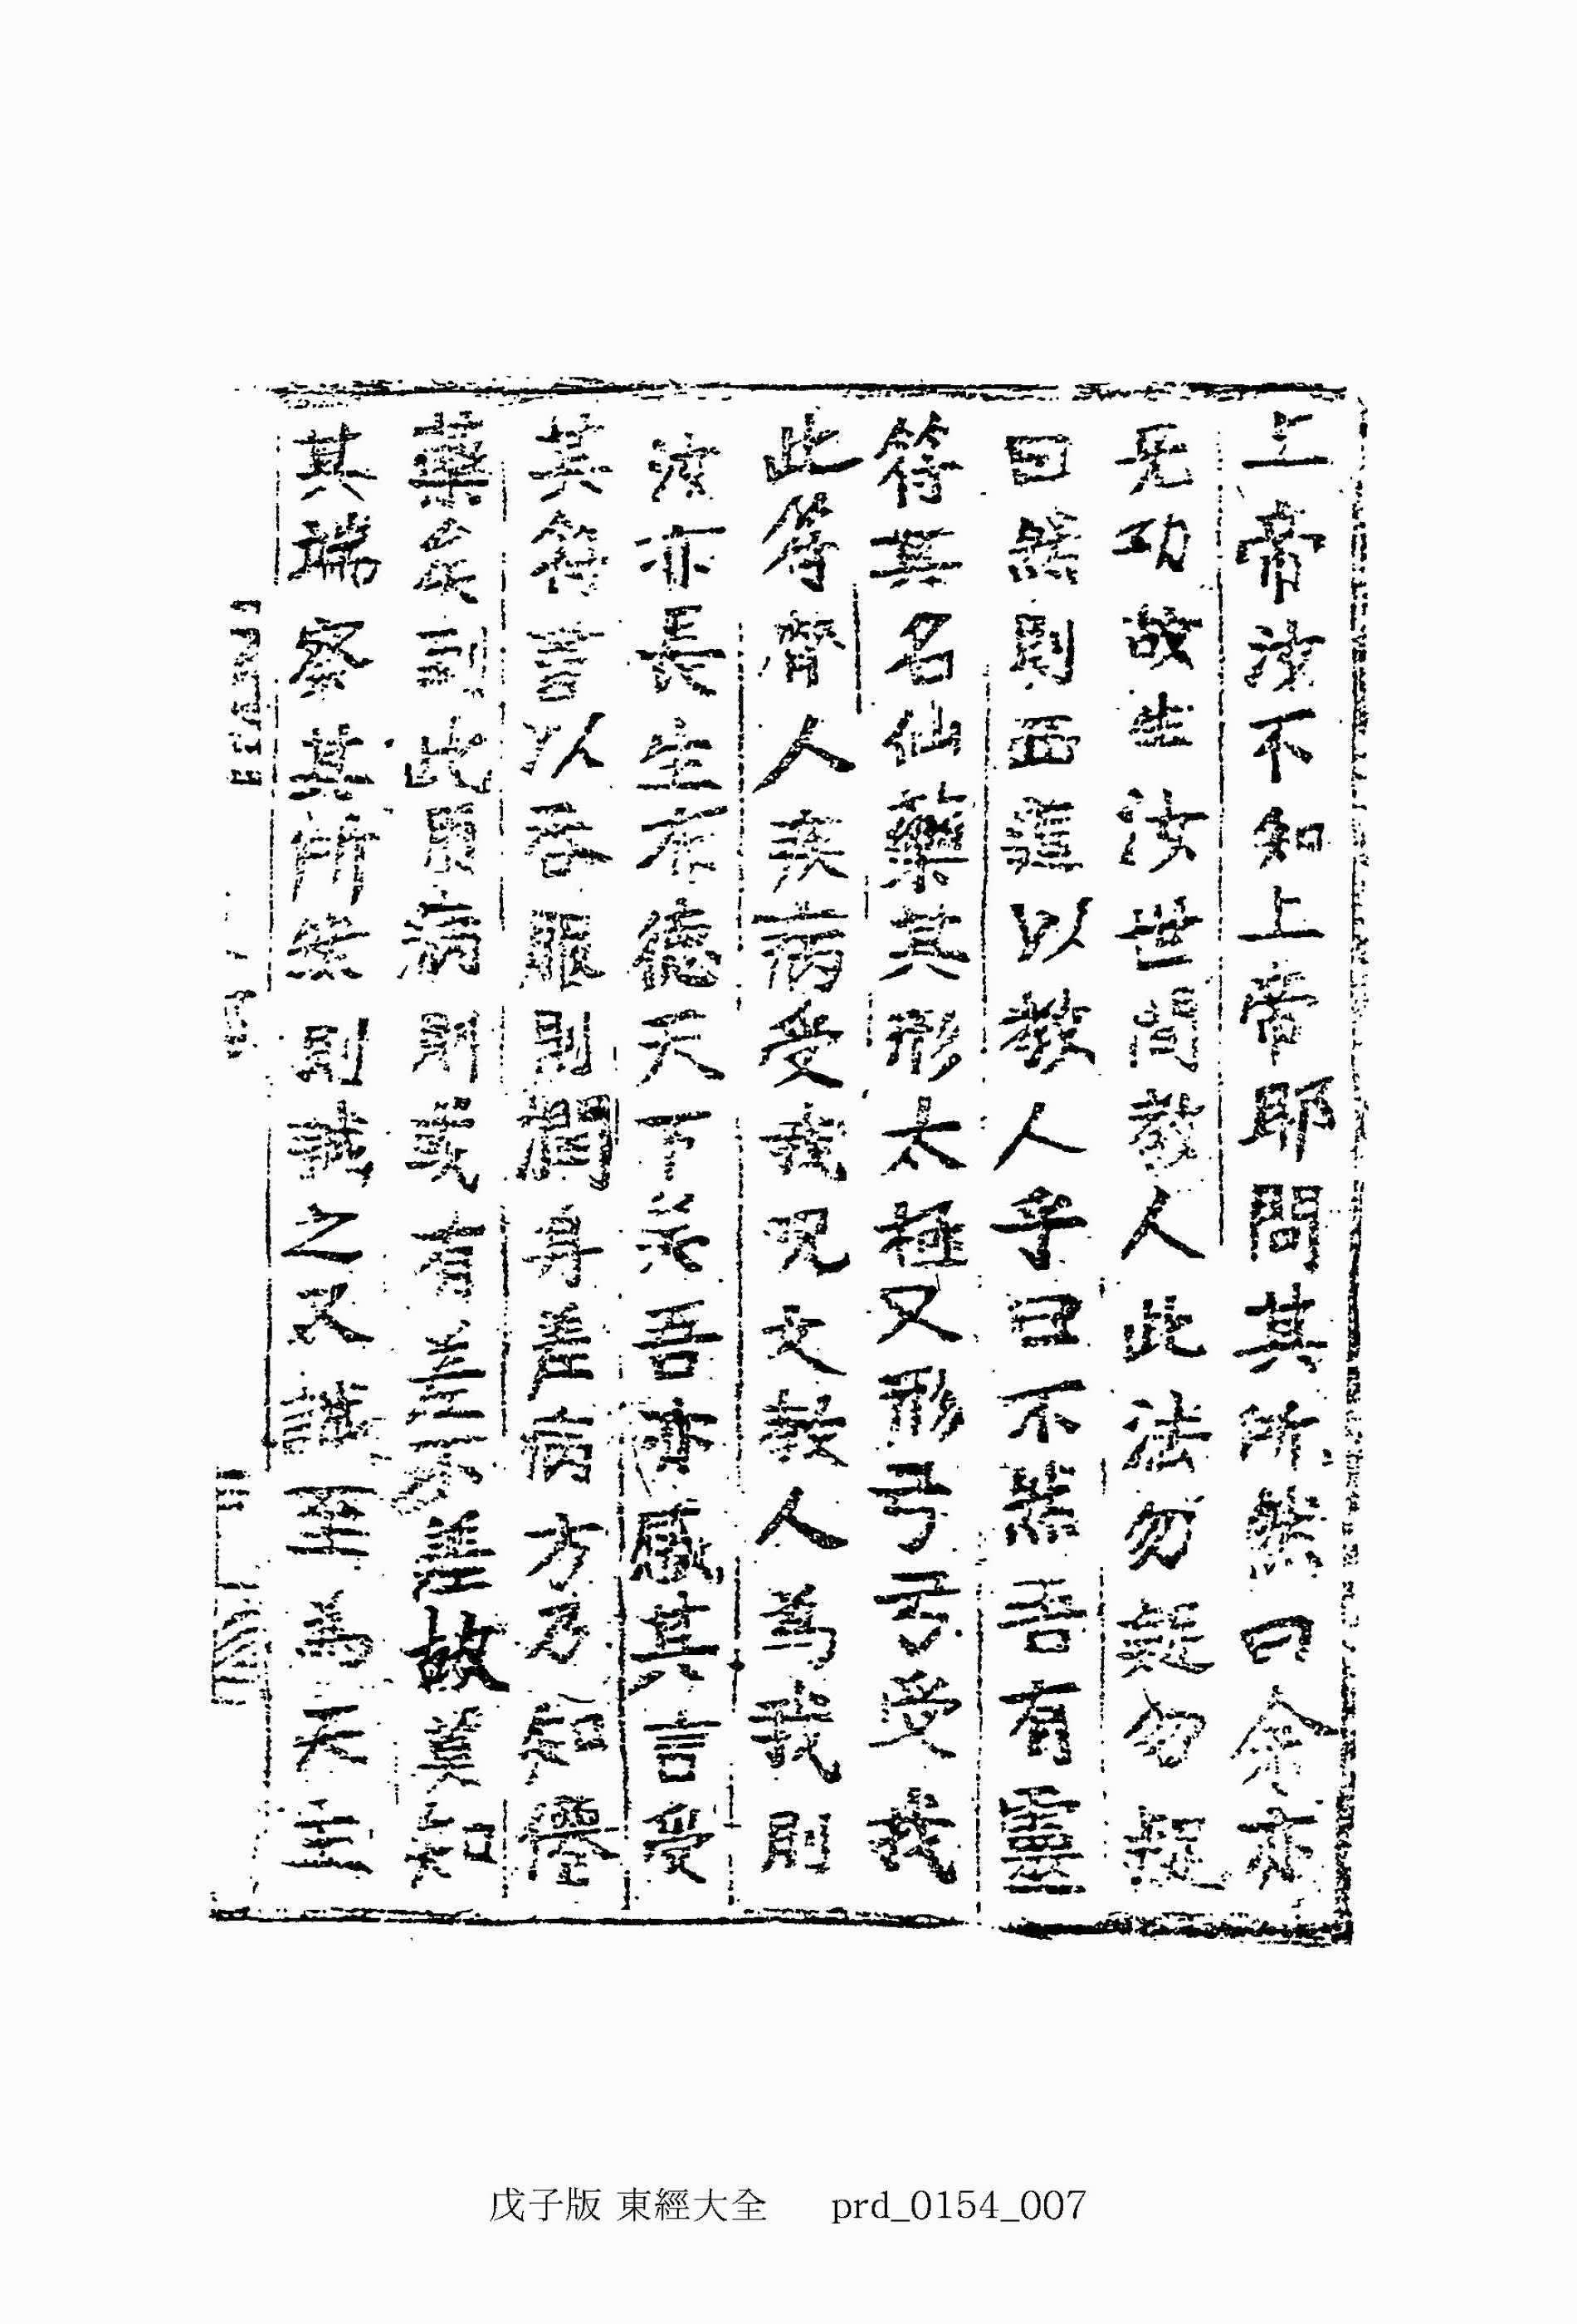 上帝汝不知上帝耶問其所然曰余亦
无功故生汝世間敎人此法勿疑勿疑
曰然則西道以敎人乎曰不然吾有靈
符其名仙藥其形太極又形弓弓受我
此符濟人疾病受我呪文敎人爲我則
汝亦長生布德天下矣吾亦感其言受
其符書以呑服則潤身差病方乃知僊
藥矣到此用病則或有差不差故莫知
其端察其所然則誠之又誠至爲天主
戊子版 東經大全 prd_0154_007